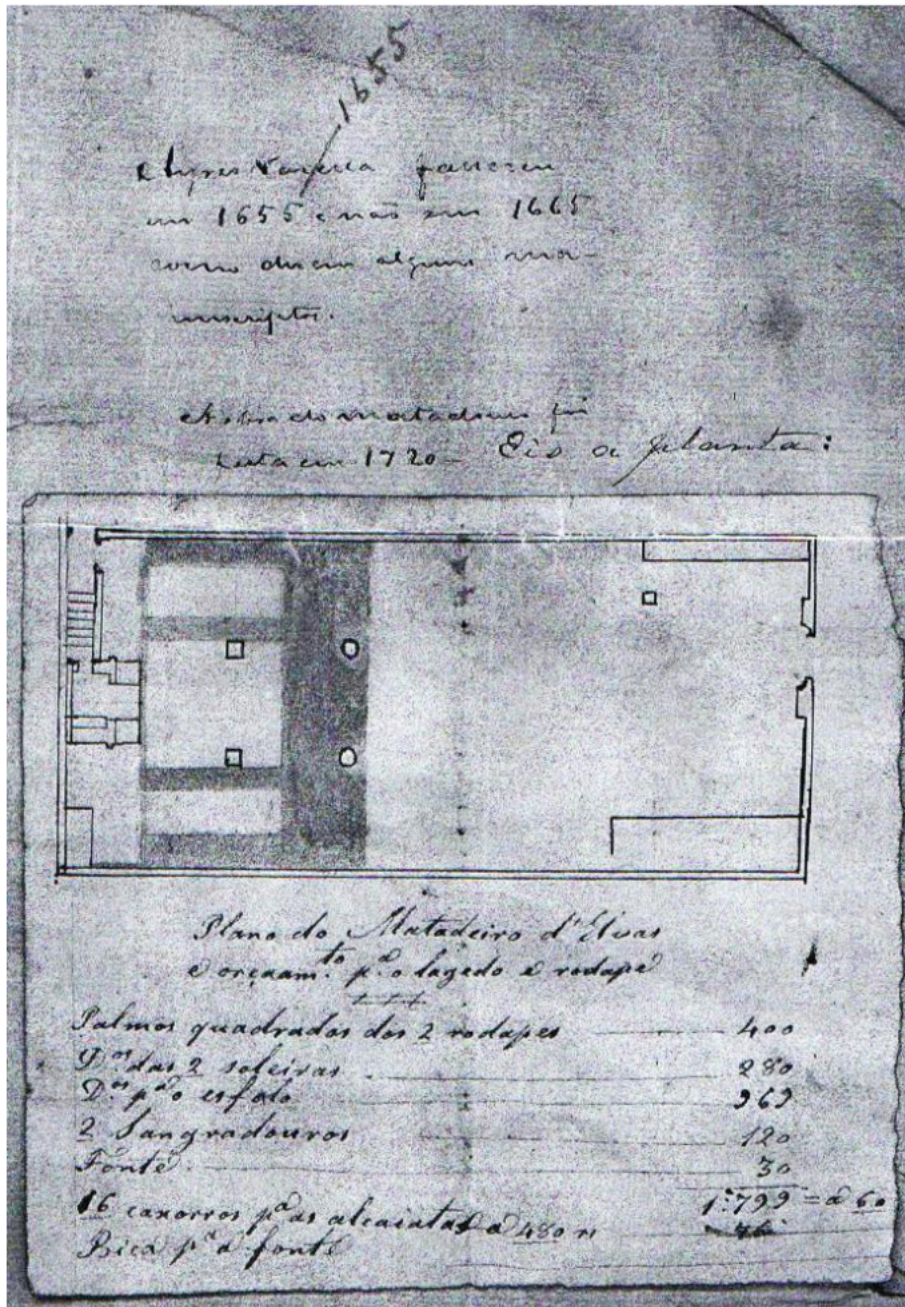 1655
Ayres Varella falleceu
em 1655 e não em 1665
como dizem alguns ma-
nuscriptos.
A obra do matadouro foi
feita em 1720 — Eis a planta:
Plano do Matadeiro d'Elvas
e orçaam.to p.a o lagedo e rodape
Palmos quadrados dos 2 rodapes 400
D.os das 2 soleiras 280
D.os p.a o esfolo 969
2 Sangradouros 120
Fonte 30
1:799 = a 60
16 caxorros p.a as alcaiatas a 480 r
Bica p.a a fonte